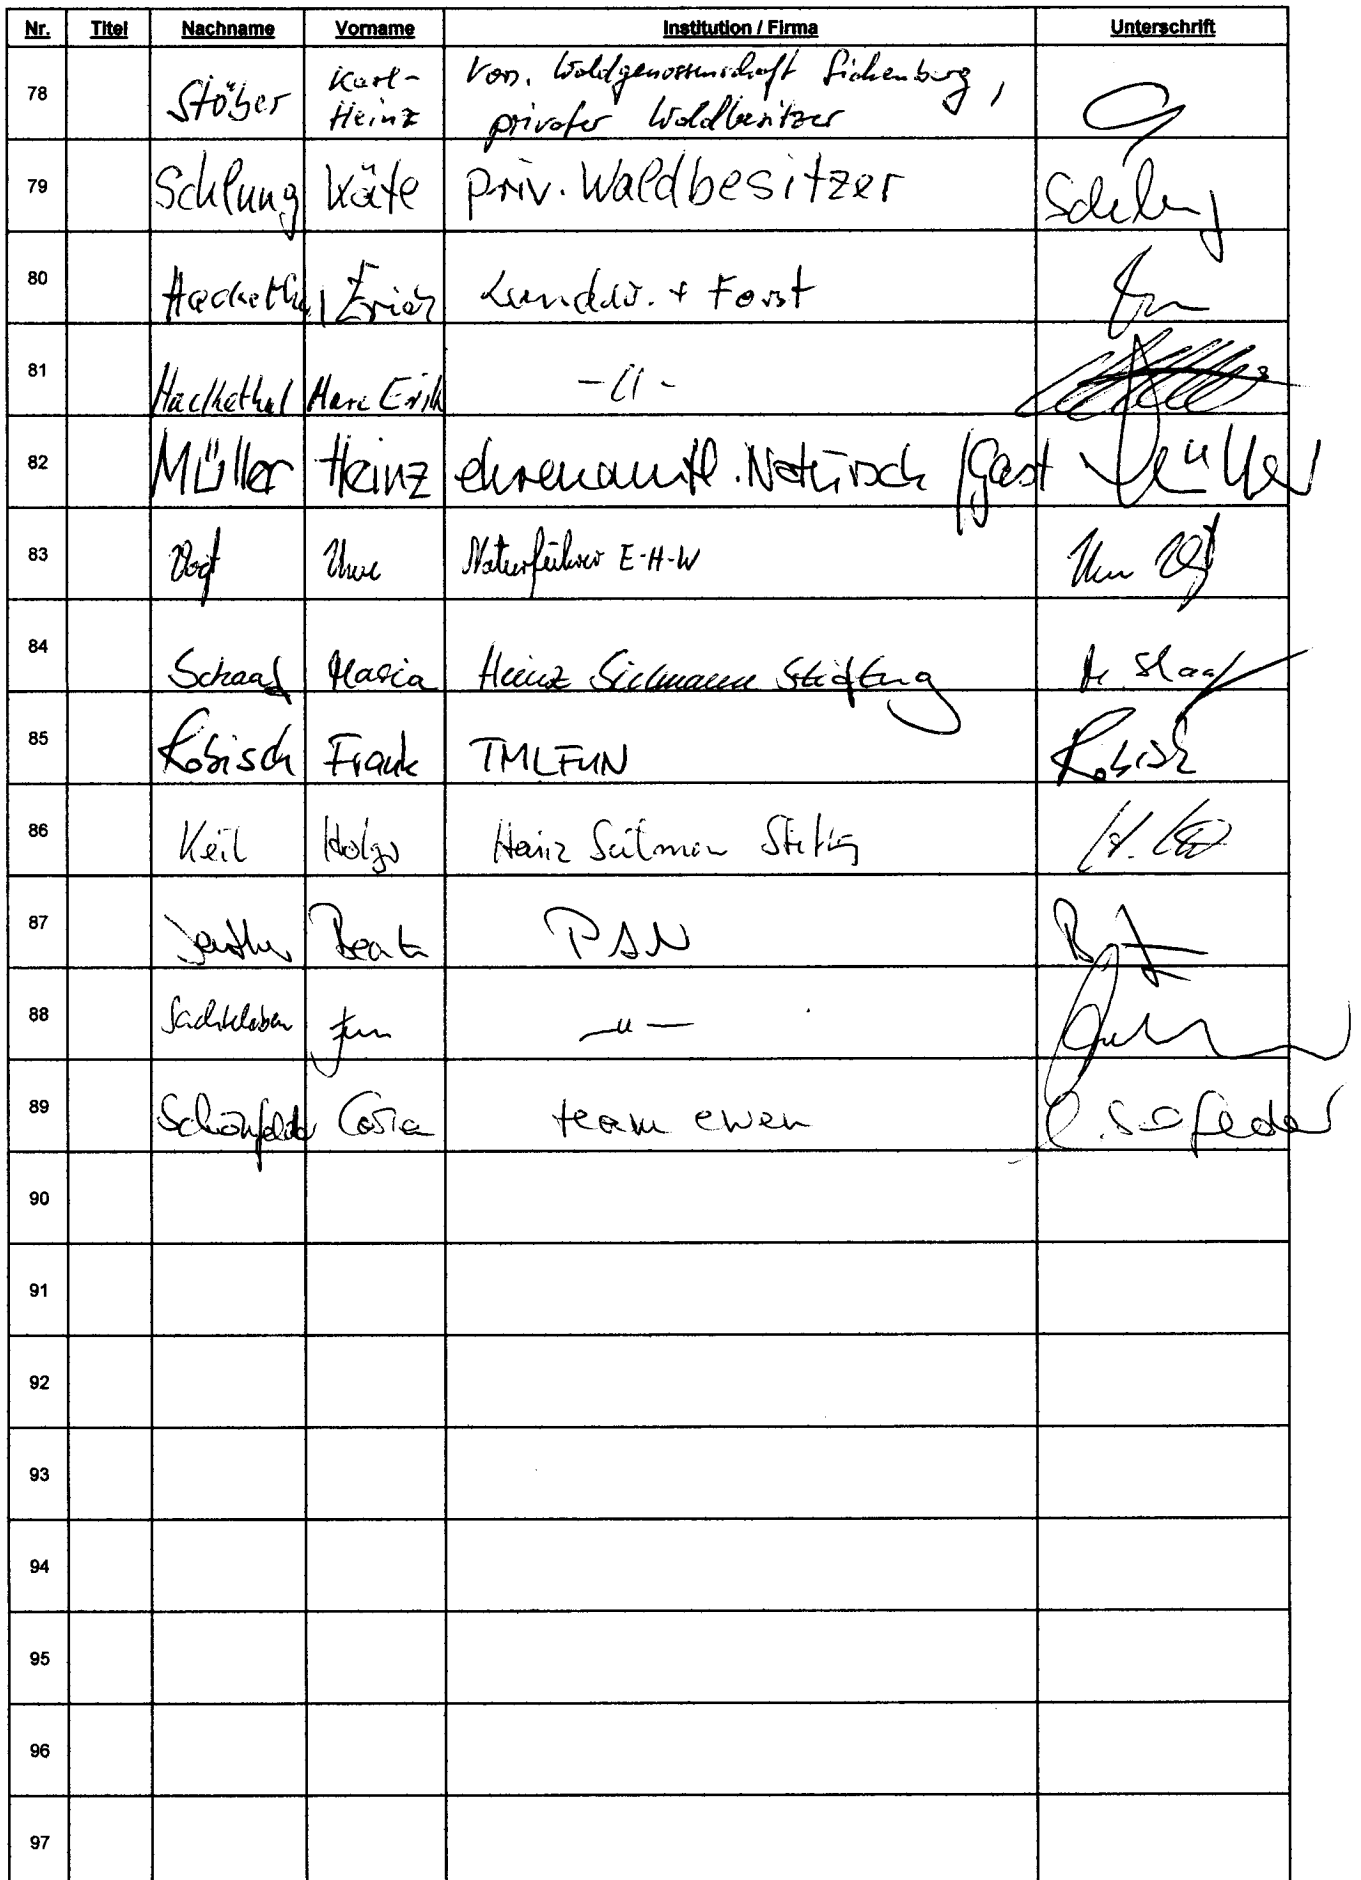 Nr. Titel Nachname Vorname Institution / Firma Unterschrift
78 Stöber Karl-Heinz Vors. Waldgenossenschaft Sickenberg,
privater Waldbesitzer
79 Schlung Käte priv. Waldbesitzer Schlung
80 Hackethal Erich Landw. + Forst
81 Hackethal Marc Erik -"-
82 Müller Heinz ehrenamtl. Natursch /Gast Müller
83 Vogt Uwe Naturführer E-H-W Uwe Vogt
84 Schaaf Maria Heinz Sielmann Stiftung M. Schaaf
85 Robisch Frank TMLFUN Robisch
86 Keil Holger Heinz Sielmann Stiftung H. Keil
87 Beate PAN
88 Sachteleben Jens -"-
89 Schönfelder team ewen
90
91
92
93
94
95
96
97